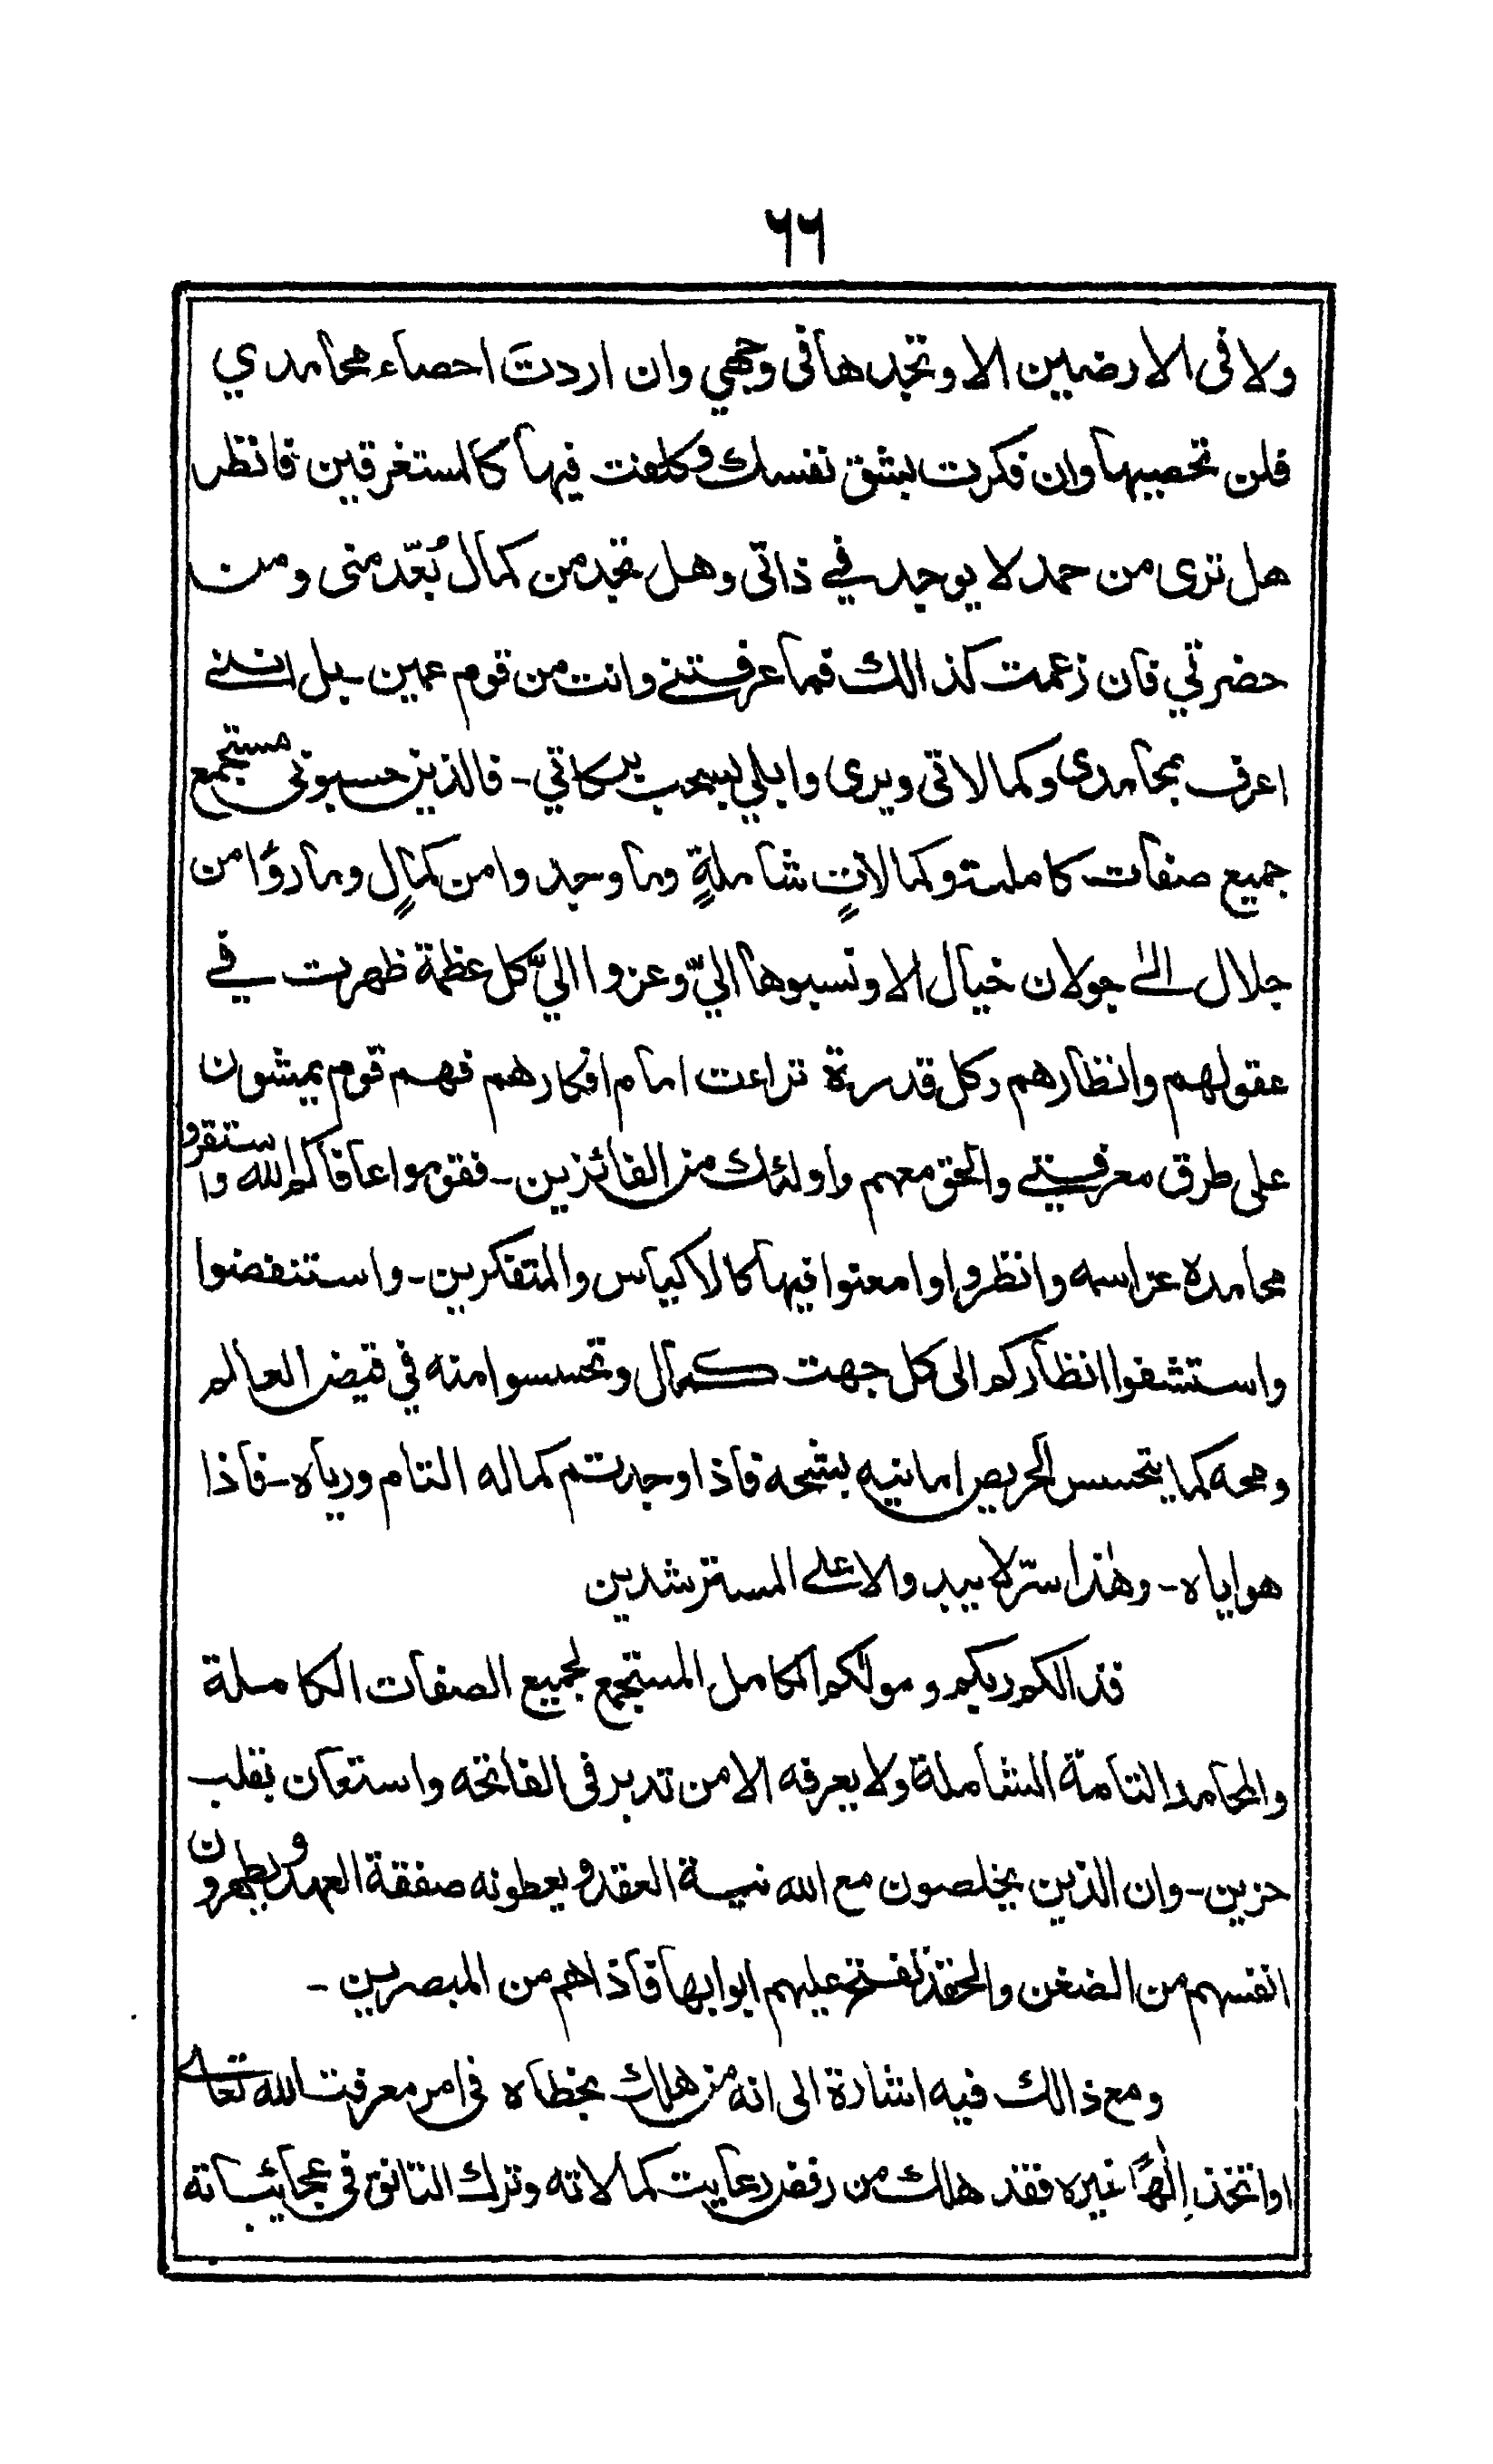 ٦٦
ولا فى الارضين الا وتجدها فى وجهي وان اردتَ احصاء محامدي
فلن تحصيها وان فكرت بشق نفسك وكلفت فيها كالمستغرقين فانظر
هل ترى من حمد لا يوجد في ذاتى وهل تجد من كمال بُعّد منى ومن
حضرتي فان زعمت كذالك فما عرفتني وانت من قوم عمين ـ بل اننى
اعرف بمحامدى وكمالاتى ويرى وابلي بسحب بركاتي ـ فالذين حسبونى مستجمع
جميع صفات كاملة وكمالاتٍ شاملةٍ وما وجدوا من كمالٍ وما رؤا من
جلال الى جولان خيال الا ونسبوها اليّ وعزوا اليّ كل عظمة ظهرت في
عقولهم وانظارهم وكل قدرة تراءت امام افكارهم فهم قوم يمشون
على طرق معرفتي والحق معهم واولئك من الفائزين ـ فقوموا عافاكم الله واستقروا
محامده عز اسمه وانظروا وامعنوا فيها كالاكياس والمتفكرين ـ واستنفضوا
واستشفوا انظاركم الى كل جهت كمال وتحسسوا منه في قيض العالم
ومحه كما يتحسس الحريص امانيه بشحه فاذا وجدتم كماله التام ورياه ـ فاذا
هو اياه ـ وهٰذا سرّ لا يبدو الا على المسترشدين
فذالكم ربكم ومولٰكم الكامل المستجمع لجميع الصفات الكاملة
والمحامد التامة الشاملة ولا يعرفه الا من تدبر فى الفاتحه واستعان بقلب
حزين ـ وان الذين يخلصون مع الله نية العقد ويعطونه صفقة العهد ويطهرون
انفسهم من الضغن والحقد تفتح عليهم ابوابها فاذا هم من المبصرين ـ
ومع ذالك فيه اشارة الى انه من هلك بخطاه فى امر معرفت الله تعالى
او اتخذ الٰهًا غيره فقد هلك من رفض رعايت كمالاته وترك التانق فى عجائباته